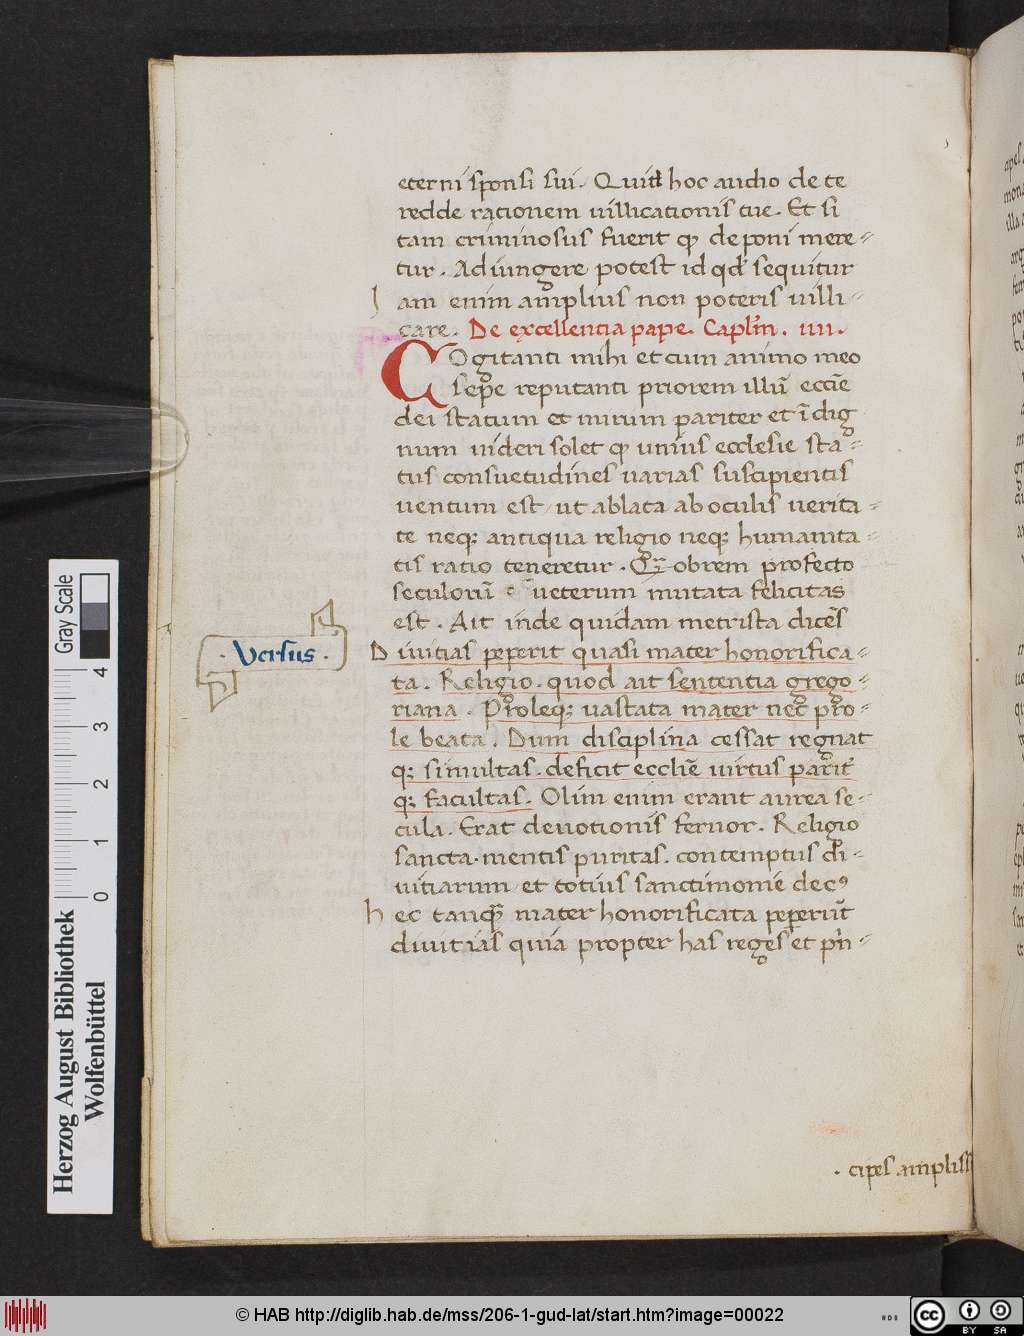 eterni sponsi sui. Quid hoc audio de te
redde rationem uillicationis tue. Et si
tam criminosus fuerit ꝙ deponi mere⸗
tur. Adiungere potest id qđ sequitur
Iam enim amplius non poteris uilli⸗
care. De excellentia pape. Caplm̄. iiii.
COgitanti mihi et cum animo meo
sepe reputanti priorem illū ecclīe
dei statum et mirum pariter et īdig
num uideri solet ꝙ unius ecclesie sta⸗
tus consuetudines uarias suscipientis
uentum est / ut ablata ab oculis uerita⸗
te neqꝫ antiqua religio neqꝫ humanita⸗
tis ratio teneretur. Qͣobrem profecto
seculorū ueterum mutata felicitas
est. Ait inde quidam metrista dicēs
· Versus ·
Diuitias peperit quasi mater honorifica⸗
ta. Religio. quod ait sententia grego⸗
riana. Proleqꝫ uastata mater nec pro⸗
le beata. Dum disciplina cessat regnat
qꝫ simultas. deficit ecclīe uirtus parit̄
qꝫ facultas. Olim enim erant aurea se⸗
cula. Erat deuotionis feruor. Religio
sancta. mentis puritas. contemptus di⸗
uitiarum / et totius sanctimonie decꝰ
Hec tanqͣ mater honorificata peperūt
diuitias quia propter has reges et prī⸗
· cipes ampliss
Herzog August Bibliothek
Wolfenbüttel
Gray Scale
0 1 2 3 4
© HAB http://diglib.hab.de/mss/206-1-gud-lat/start.htm?image=00022
cc BY SA